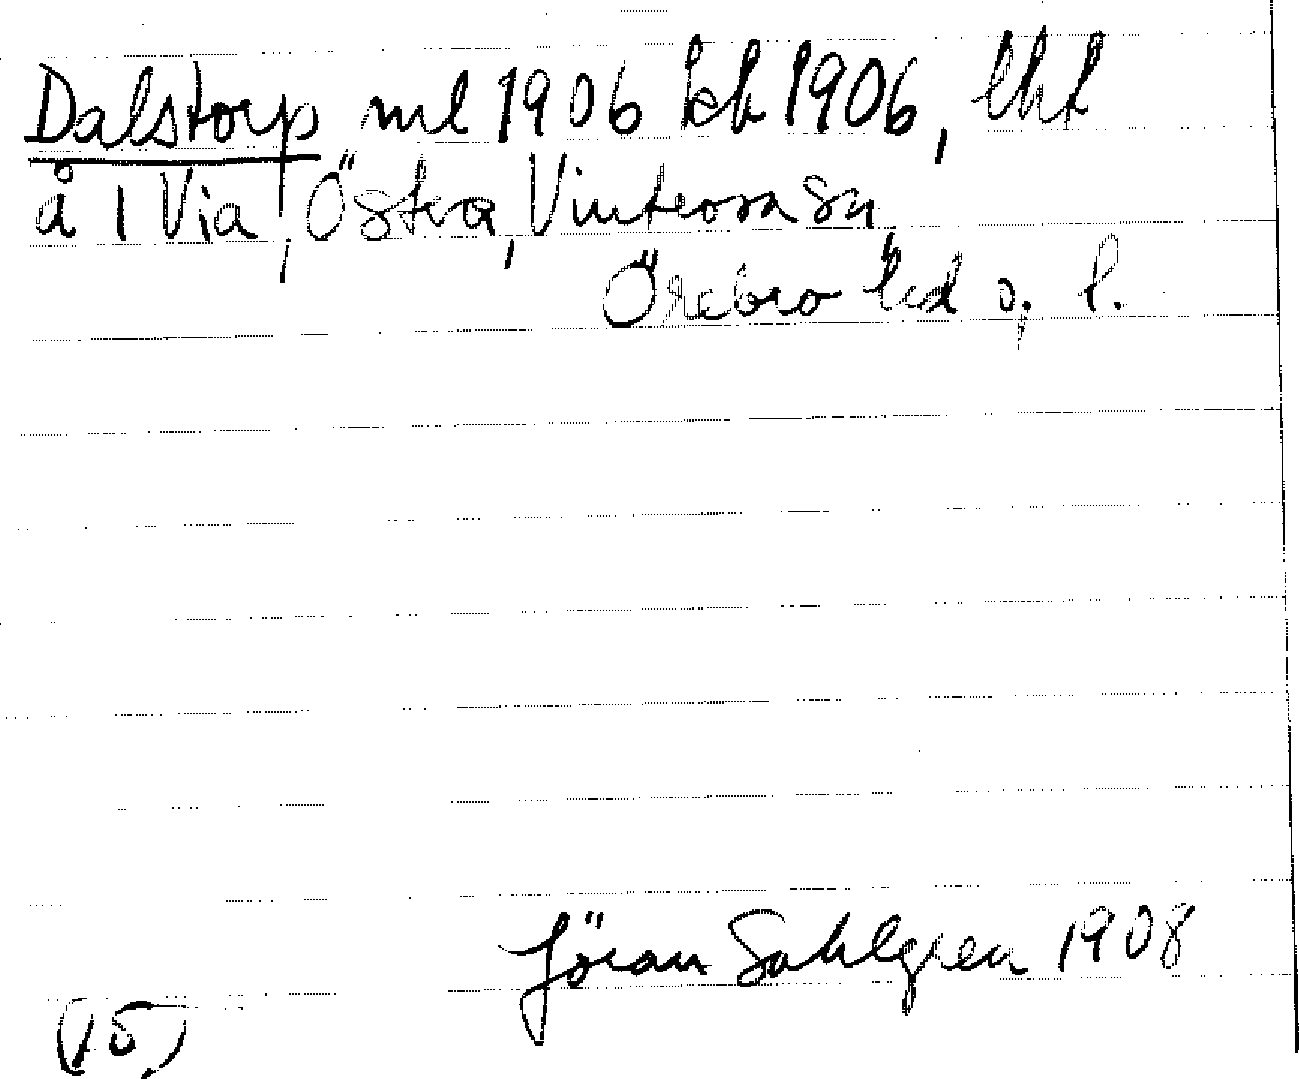 Dalstorp ml 1906 kb 1906, lht
å 1 Via, Östra, Vintrosa sn
Örebro hd o. l.
Jöran Sahlgren 1908